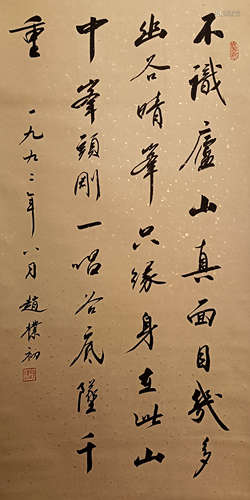 不識廬山真面目幾多
幽谷晴峯只緣身在此山
中峯頭剛一唱谷底墜千
重
一九九二年八月趙樸初